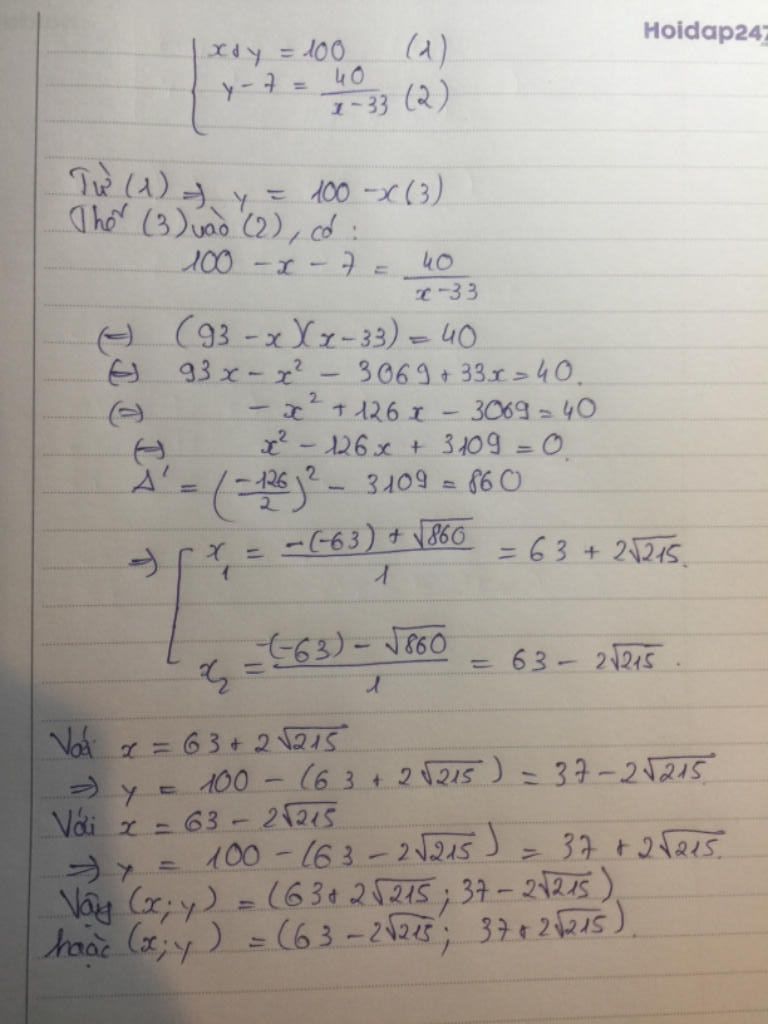 Hoidap247
x+y = 100 (1)
y - 7 = 40/(x-33) (2)
Từ (1) => y = 100 - x (3)
Thế (3) vào (2), có:
100 - x - 7 = 40/(x-33)
(=) (93 - x)(x - 33) = 40
(=) 93x - x² - 3069 + 33x = 40.
(=) - x² + 126x - 3069 = 40
(=) x² - 126x + 3109 = 0.
Δ' = (-126/2)² - 3109 = 860
=> [ x₁ = (-(-63) + √860)/1 = 63 + 2√215.
x₂ = (-(-63) - √860)/1 = 63 - 2√215.
Với x = 63 + 2√215
=> y = 100 - (63 + 2√215) = 37 - 2√215.
Với x = 63 - 2√215
=> y = 100 - (63 - 2√215) = 37 + 2√215.
Vậy (x; y) = (63 + 2√215; 37 - 2√215)
hoặc (x; y) = (63 - 2√215; 37 + 2√215).